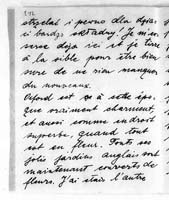 i bardzo układny! Je m'en
serre déjà ici et je tire
à la sible pour être bien
sure de ne rien manquer
du nouveau.
Oxford est ça à cette épo-
que vraiment charmant,
et aussi comme endroit
superbe, quand tout
est en fleur. Tous ses
jolis jardins anglais sont
maintenant couverts de
fleurs. J'ai était l'autre